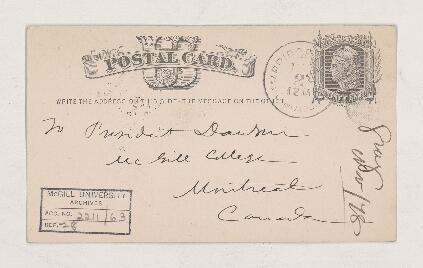 POSTAL CARD.
WRITE THE ADDRESS ON THIS SIDE - THE MESSAGE ON THE OTHER
To President Dawson
McGill College
Montreal
Canada
Gray
Nov/78
McGILL UNIVERSITY
ARCHIVES
ACC. NO. 2211/63
REF. 28